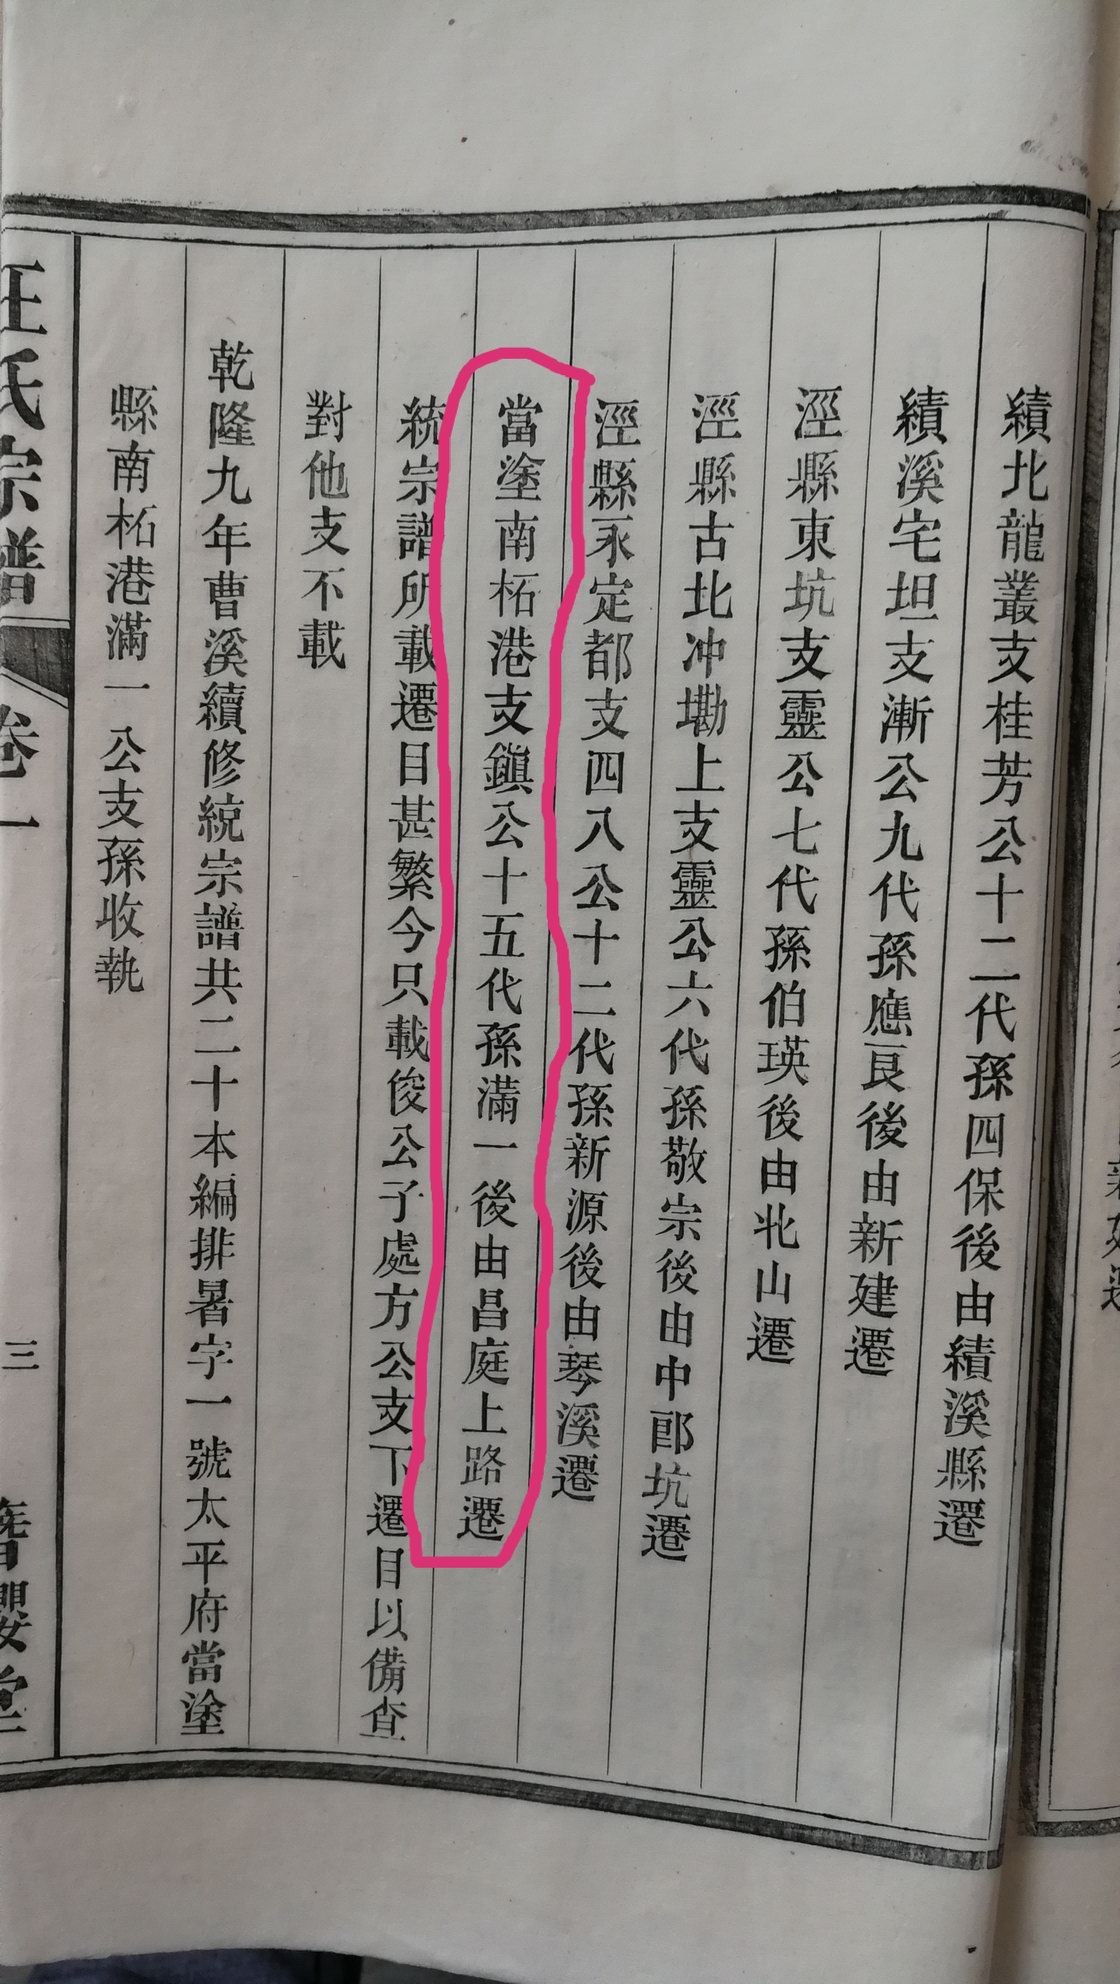 績北龍叢支桂芳公十二代孫四保後由績溪縣遷
績溪宅坦支漸公九代孫應良後由新建遷
涇縣東坑支靈公七代孫伯瑛後由北山遷
涇縣古北冲墈上支靈公六代孫敬宗後由中郎坑遷
涇縣永定都支四八公十二代孫新源後由琴溪遷
當塗南柘港支鎮公十五代孫滿一後由昌庭上路遷
統宗譜所載遷目甚繁今只載俊公子處方公支下遷目以備查
對他支不載
乾隆九年曹溪續修統宗譜共二十本編排暑字一號太平府當塗
縣南柘港滿一公支孫收執
汪氏宗譜
卷一
三